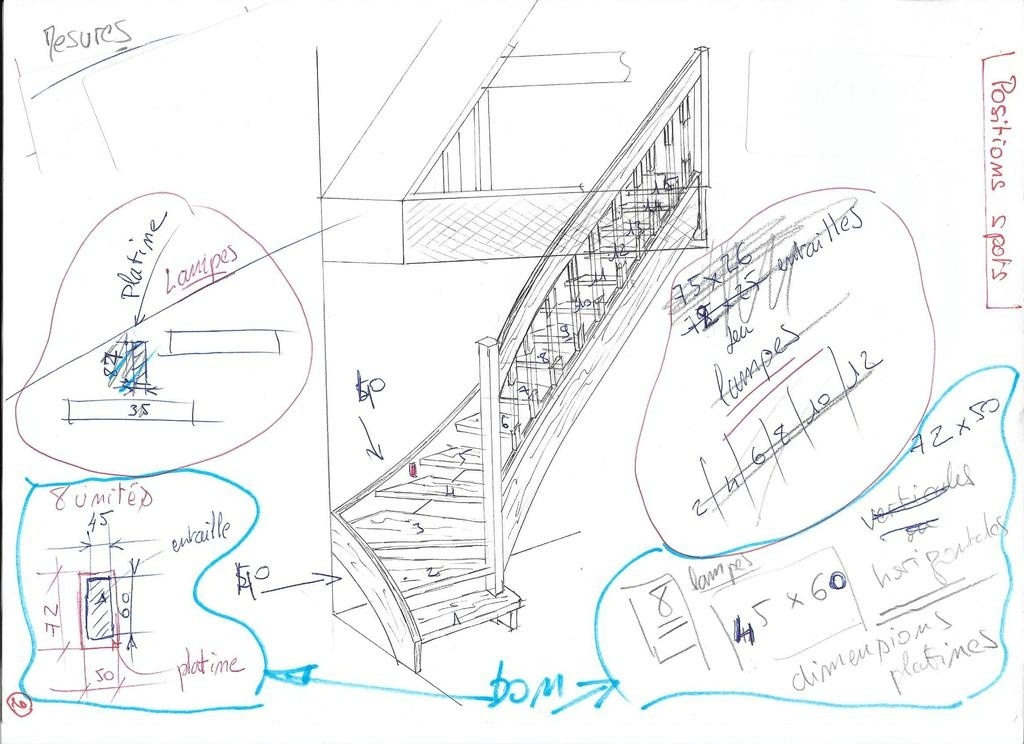 Mesures
Positions spots
Platine
Lampes
35
75 x 26
entailles
lampes
2/4/6/8/10/12
72 x 50
verticales
ou
horizontales
8
lampes
45 x 60
dimensions
platines
8 unités
45
entaille
72
60
50
platine
BOM
2
1
2
3
4
5
6
7
8
9
10
11
12
13
14
15